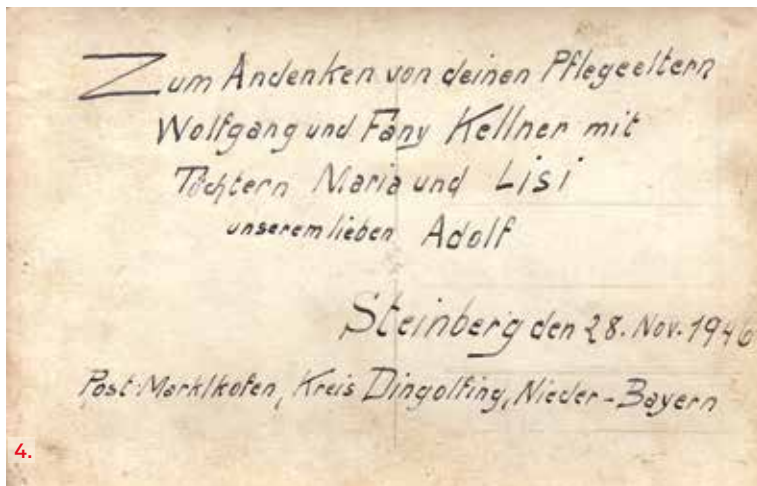 Zum Andenken von deinen Pflegeeltern
Wolfgang und Fany Kellner mit
Töchtern Maria und Lisi
unserem lieben Adolf
Steinberg den 28. Nov. 1946
Post: Marklkofen, Kreis Dingolfing, Nieder-Bayern
4.